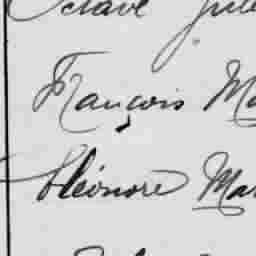 Octave Jule
François Ma
Eléonore Mar